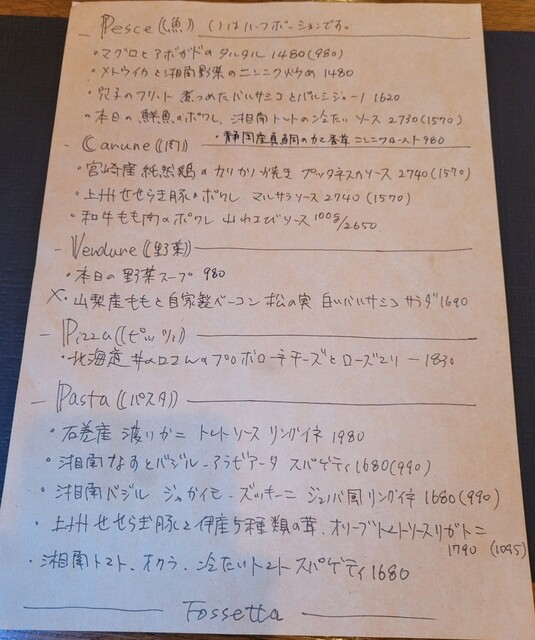 Pesce(魚) ()はハーフポーションです。
・マグロとアボガドのタルタル 1480(980)
・メトウイカと湘南野菜のニンニク炒め 1480
・穴子のフリット 煮つめたバルサミコとパルミジャーノ 1620
・本日の鮮魚のポワレ、湘南トマトの冷たいソース 2730(1570)
・静岡産真鯛のカマ香草ニンニクロースト 980
Carune(肉)
・宮崎産純然鶏のカリカリ焼き プッタネスカソース 2740(1570)
・上州せせらぎ豚のポワレ マルサラソース 2740(1570)
・和牛もも肉のポワレ 山わさびソース 100g/2650
Verdune(野菜)
・本日の野菜スープ 980
×・山梨産ももと自家製ベーコン 松の実 白いバルサミコ サラダ 1690
Pizza(ピッツァ)
・北海道 プロボローネチーズとローズマリー 1830
Pasta(パスタ)
・石巻産 渡りカニ トマトソース リングイネ 1980
・湘南なすとバジル・アラビアータ スパゲティ 1680(990)
・湘南バジル ジャガイモ・ズッキーニ ジェノバ風リングイネ 1680(990)
・上州せせらぎ豚と伊産5種類の茸、オリーブトマトソースリガトーニ
1790 (1095)
・湘南トマト、オクラ、冷たいトマトスパゲティ 1680
Fossetta